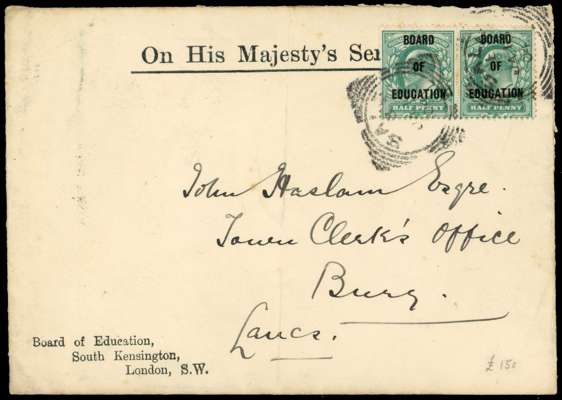 On His Majesty's Ser
BOARD OF EDUCATION
HALF PENNY
BOARD OF EDUCATION
HALF PENNY
John Haslam Esqre.
Town Clerk's Office
Bury.
Lancs.
Board of Education,
South Kensington,
London, S.W.